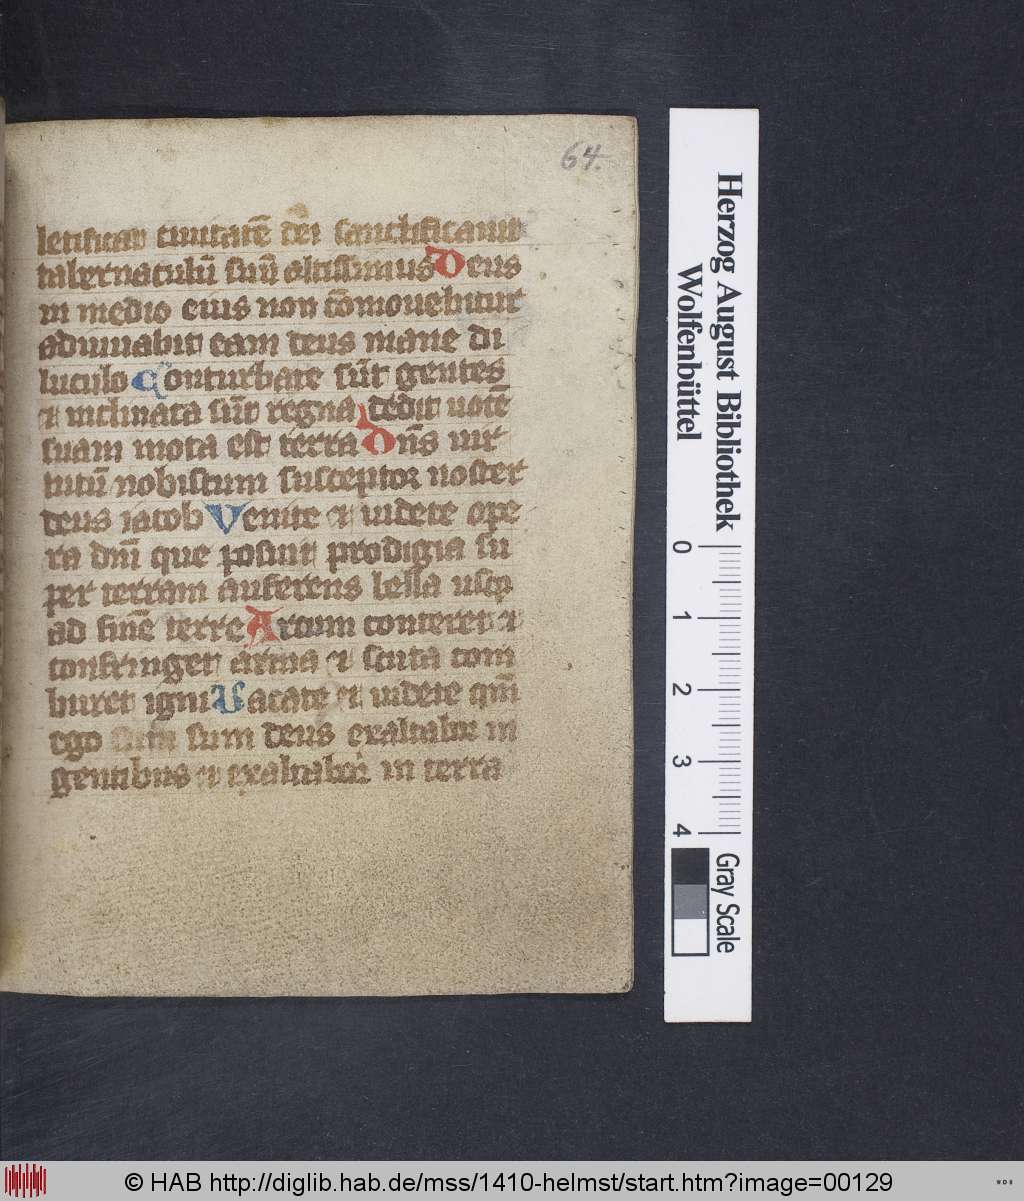 64.
letificat ciuitatē dei sanctificauit
tabernaculū suū altissimus Deus
in medio eius non cōmouebitur
adiuuabit eam deus mane di
luculo Conturbate sūt gentes
et inclinata sūt regna dedit uocē
suam mota est terra Dn̄s uir
tutū nobiscum susceptor noster
deus iacob Venite et uidete ope
ra dn̄i que posuit prodigia su
per terram auferens bella usqꝫ
ad finē terre Arcum conteret et
confringet arma et scuta com
buret igni Vacate et uidete qm̄
ego sum deus exaltabor in
gentibus et exaltabor in terra
Herzog August Bibliothek
Wolfenbüttel
0 1 2 3 4
Gray Scale
© HAB http://diglib.hab.de/mss/1410-helmst/start.htm?image=00129